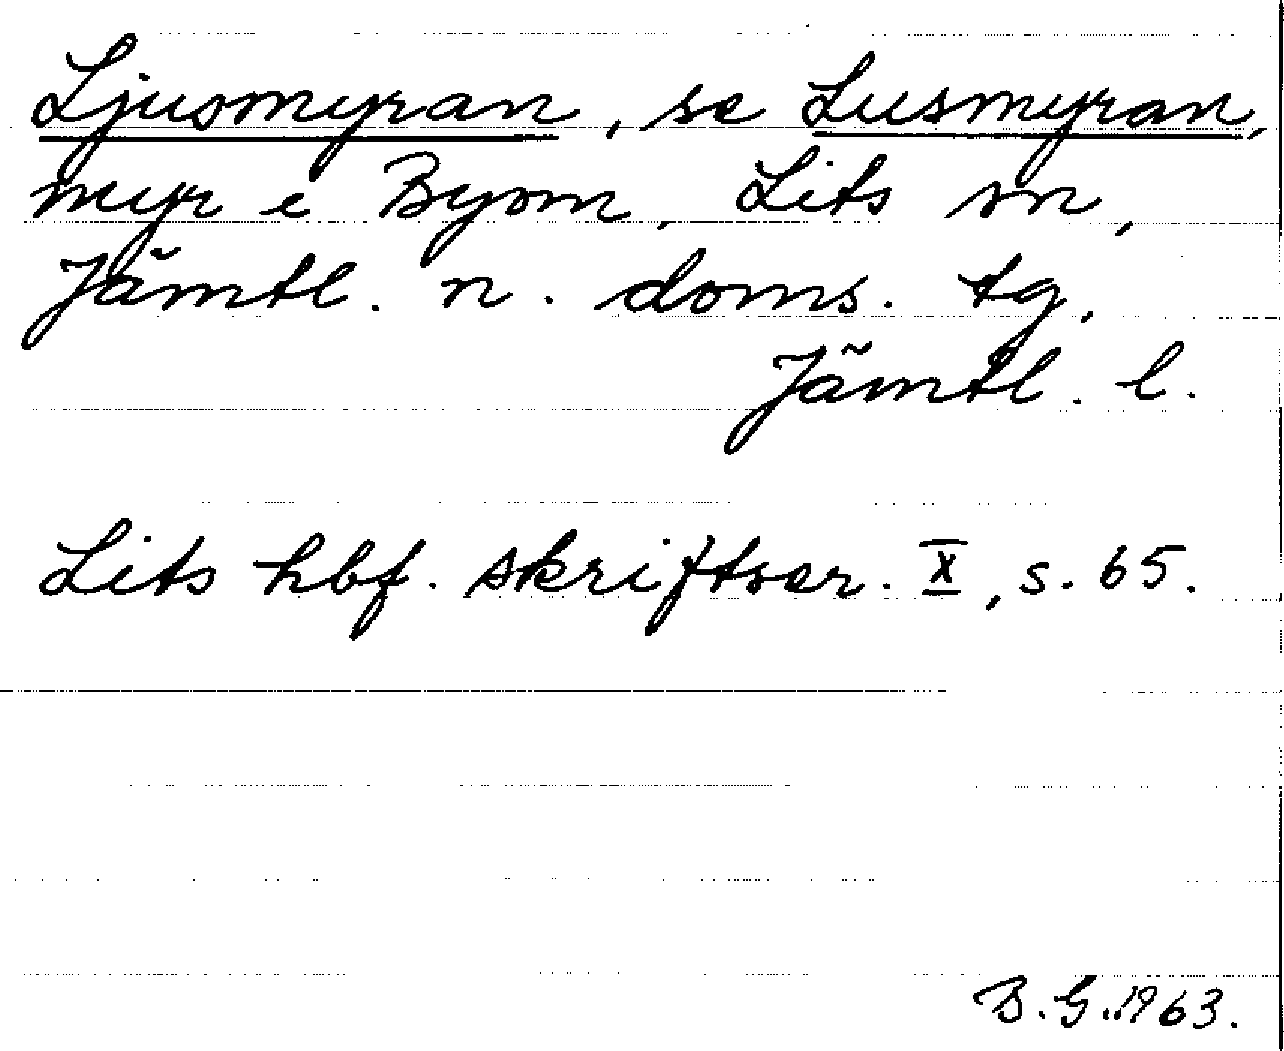 Ljusmyran, se Lusmyran,
myr i Byom, Lits sn,
Jämtl. n. doms. tg,
Jämtl. l.
Lits hbf. skriftser. X, s. 65.
B.G. 1963.